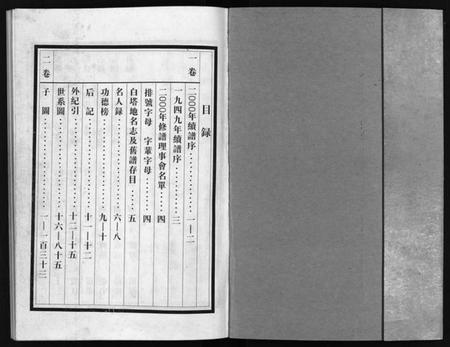 目錄
一卷
二000年續譜序……一—二
一九四九年續譜序……三
二000年修譜理事會名單……四
排號字母 字輩字母……四
白塔地名志及舊譜存目……五
名人録……六—八
功德榜……九—十
后記……十一—十二
外紀引……十二—十五
世系圖……十六—八十五
二卷
子圖……一—一百三十三